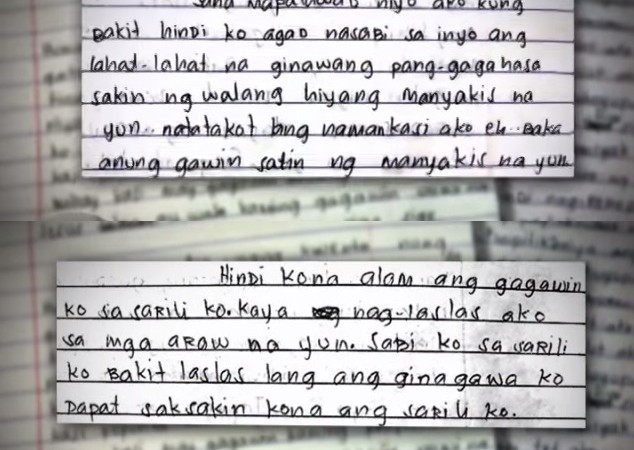 sana mapatawad niyo ako kung
bakit hindi ko agad nasabi sa inyo ang
lahat-lahat na ginawang pang-gagahasa
sakin ng walang hiyang manyakis na
yun.. natatakot lang naman kasi ako eh.. baka
anung gawin satin ng manyakis na yun
Hindi kona alam ang gagawin
ko sa sarili ko. kaya nag-laslas ako
sa mga araw na yun. sabi ko sa sarili
ko bakit laslas lang ang ginagawa ko
dapat saksakin kona ang sarili ko.